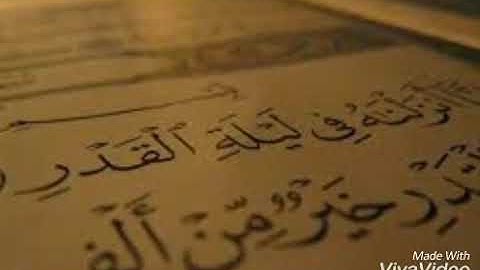 أَنزَلْنَٰهُ فِى لَيْلَةِ ٱلْقَدْرِ
ٱلْقَدْرِ خَيْرٌ مِّنْ أَلْفِ
Made With
VivaVideo